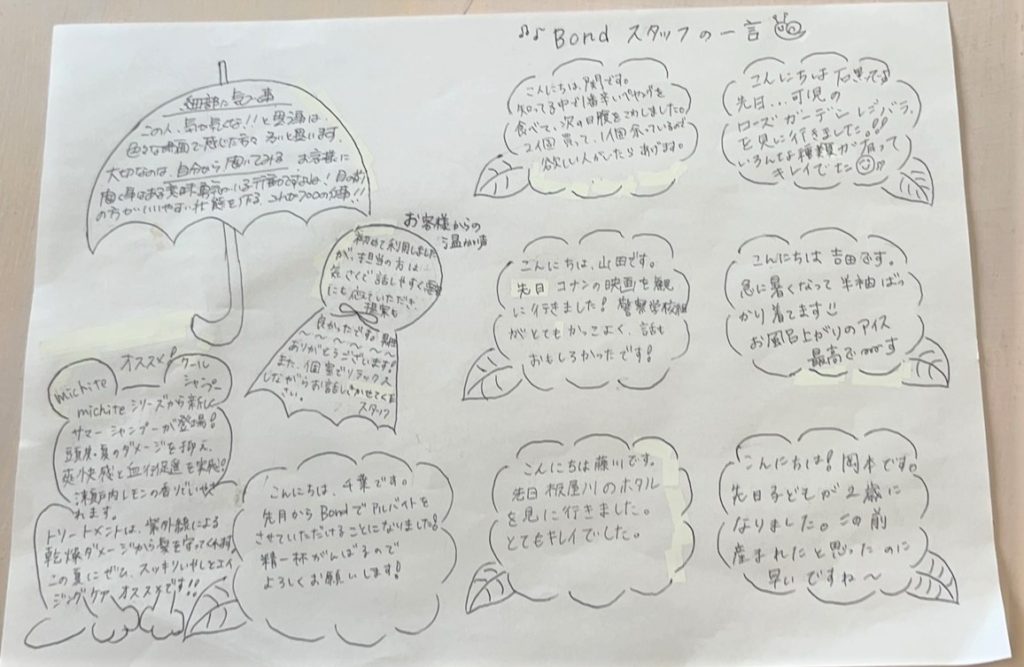 ♪♪ Bond スタッフの一言
細部に気づく事
この人、気が気くな!!と思う事は、
色々な場面で感じた方も多いと思います。
大切なのは、自分から聞いてみる お客様に
聞く事はある意味勇気のいる行動ですよね!
の方がいいやすい状態を作る、これがプロの仕事!!
お客様からの
温かい声
初めて利用しました
が、担当の方は
気さくで話しやすく
にも応えていただき
良かったです。
ありがとうございます!
また、個室でリラックス
しながらお話しさせてくだ
さい。
スタッフ
オススメ!
michite
クール
シャンプー
michite シリーズから新しく
サマーシャンプーが登場!
頭皮・夏のダメージを抑え、
爽快感と血行促進を実感!
瀬戸内レモンの香りでいやさ
れます。
トリートメントは、紫外線による
乾燥ダメージから髪を守ってくれます。
この夏にぜひ、スッキリいやしとエイ
ジングケア、オススメです!!
こんにちは、千葉です。
先月から Bond でアルバイトを
させていただけることになりました!
精一杯がんばるので
よろしくお願いします!
こんにちは、関です。
知ってる中で1番辛いペヤングを
食べて、次の日腹をこわしました。
2個買って、1個余っているので
欲しい人がいたらあげます。
こんにちは 石黒です
先日...可児の
ローズガーデンにバラ
を見に行きました!!
いろんな種類が有って
キレイでした
こんにちは、山田です。
先日 コナンの映画を観
に行きました! 警察学校組
がとてもかっこよく、話も
おもしろかったです!
こんにちは 吉田です。
急に暑くなって 半袖ばっ
かり着てます!!
お風呂上がりのアイス
最高です
こんにちは 藤川です。
先日 板屋川のホタル
を見に行きました。
とてもキレイでした。
こんにちは! 岡本です。
先日子どもが2歳に
なりました。この前
産まれたと思ったのに
早いですね〜